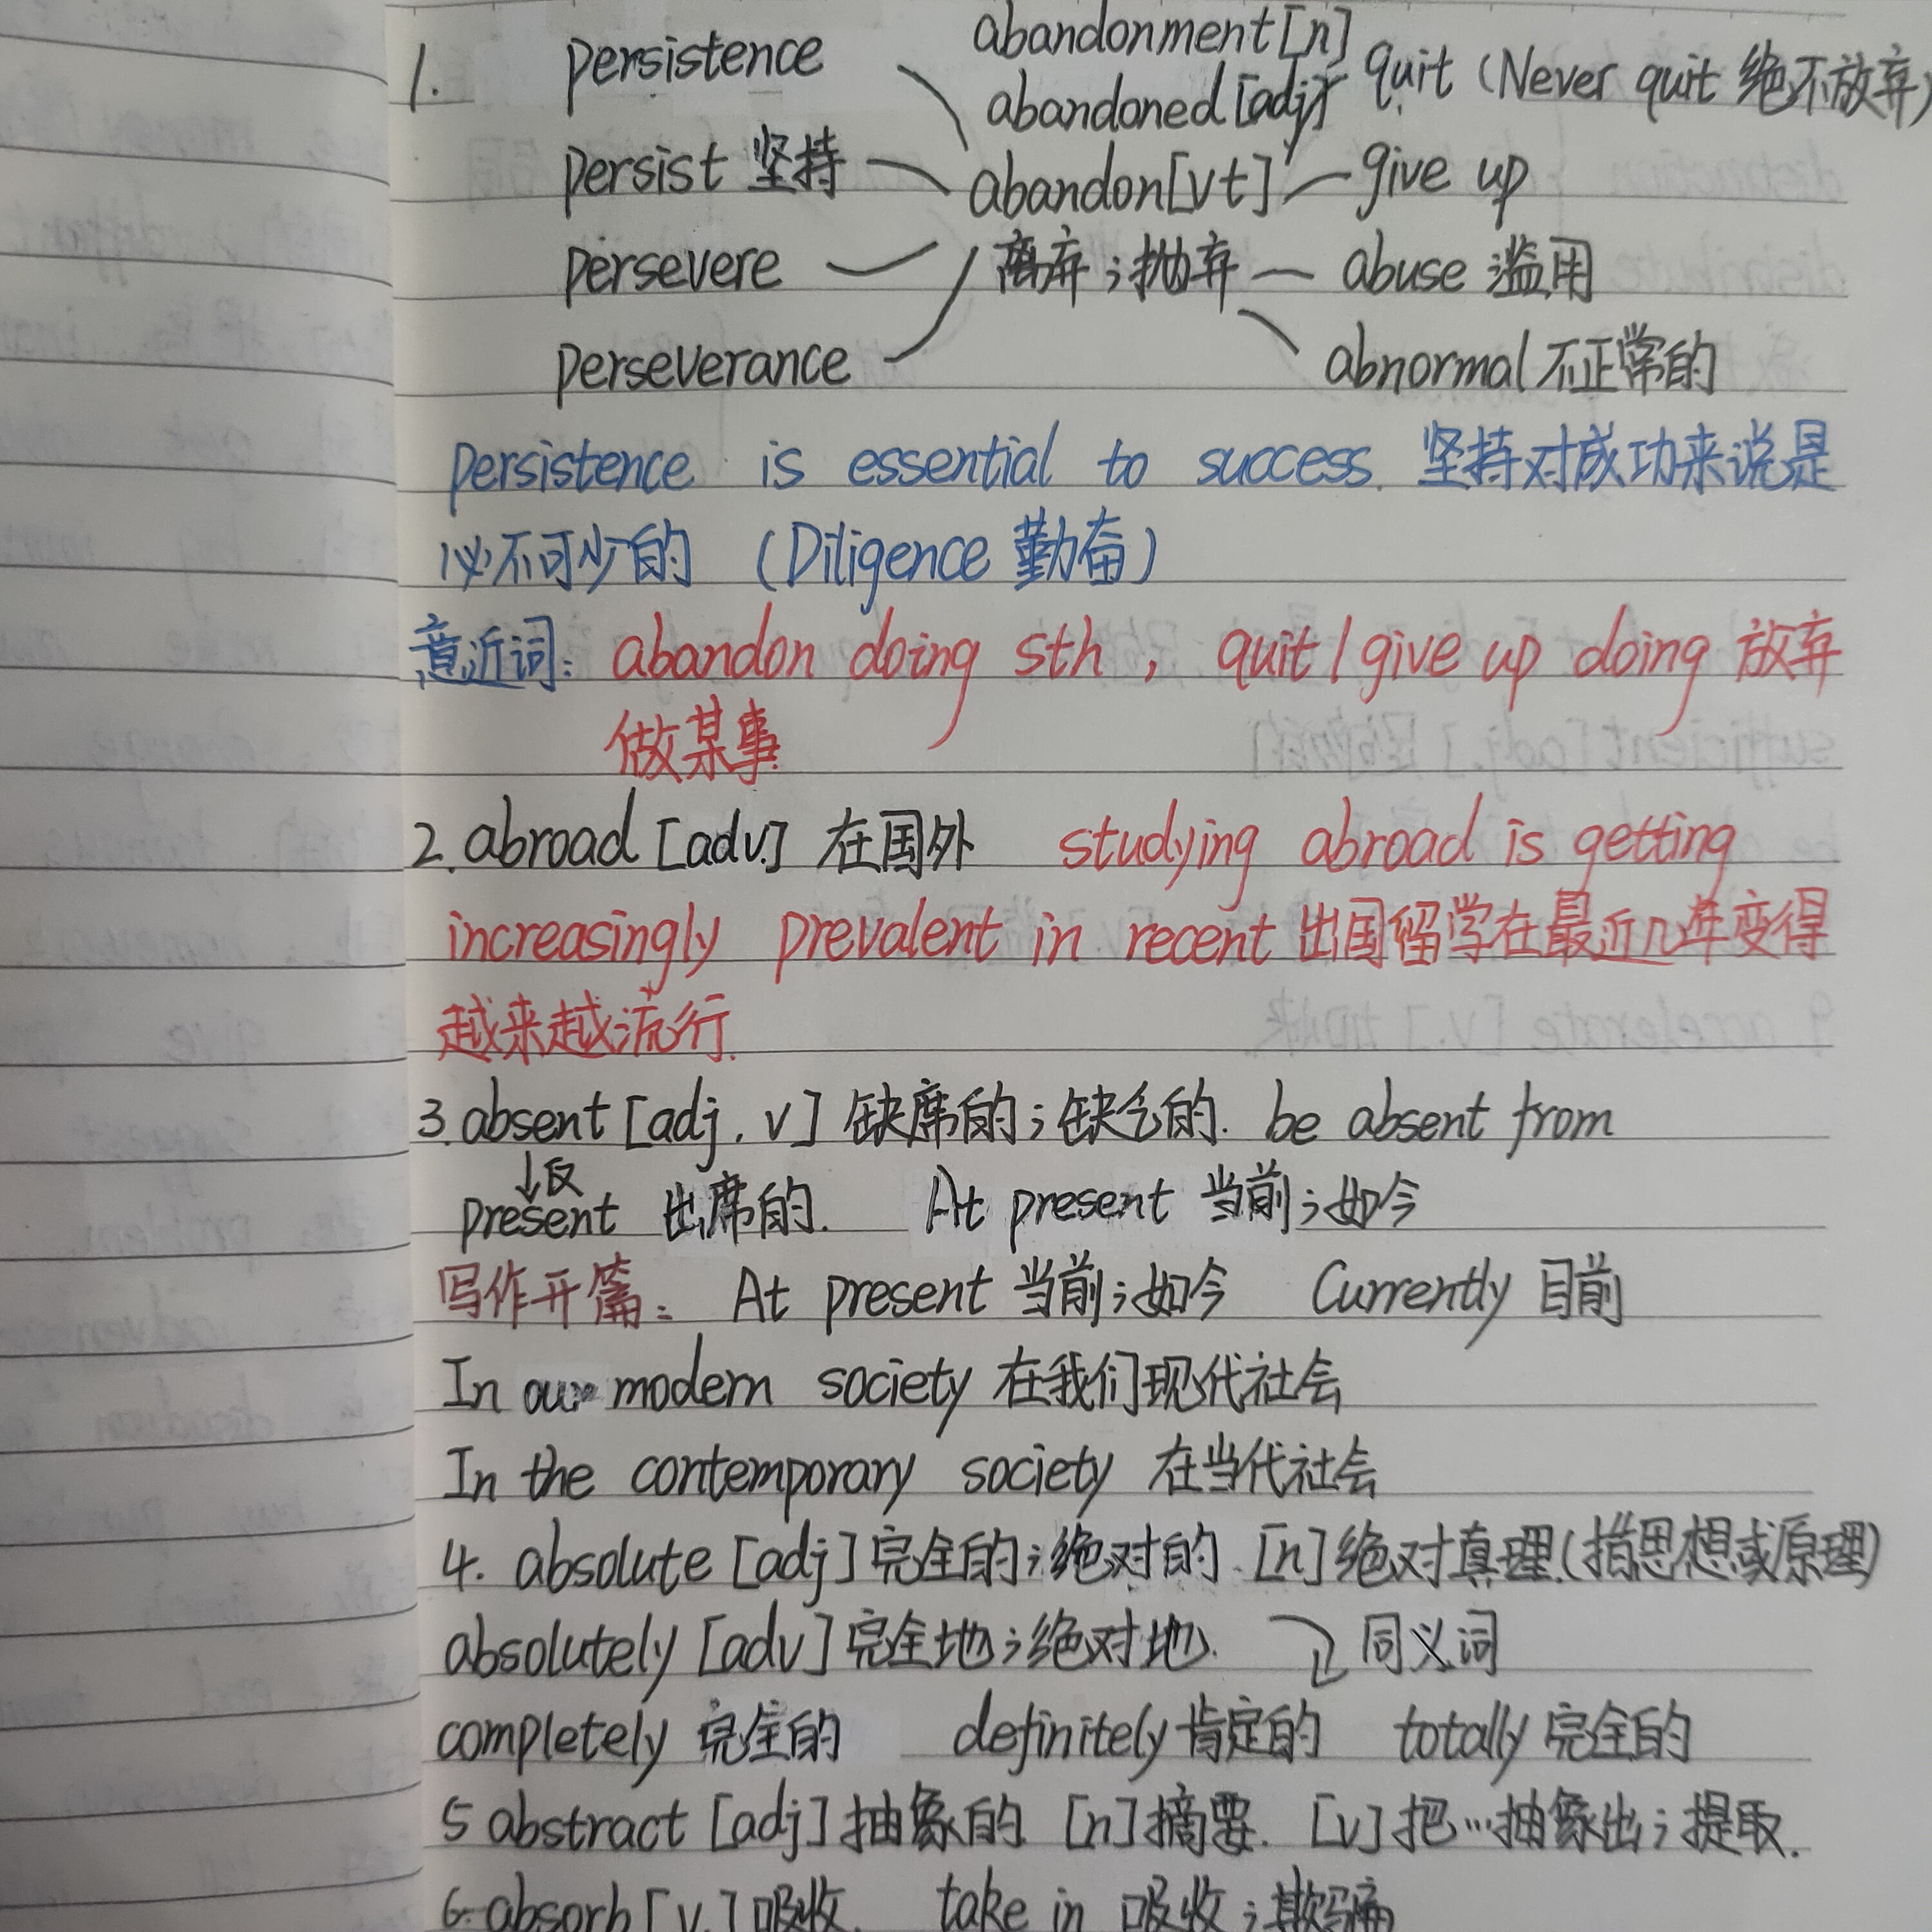 abandonment[n]
1. persistence quit (Never quit 绝不放弃)
abandoned[adj]
persist 坚持 abandon[vt] give up
persevere 离弃；抛弃 abuse 滥用
perseverance abnormal 不正常的
persistence is essential to success. 坚持对成功来说是
必不可少的 (Diligence 勤奋)
意近词: abandon doing sth, quit/give up doing 放弃
做某事
2. abroad [adv.] 在国外 studying abroad is getting
increasingly prevalent in recent 出国留学在最近几年变得
越来越流行.
3. absent [adj, v] 缺席的；缺乏的. be absent from
↓反
present 出席的. At present 当前；如今
写作开篇: At present 当前；如今 Currently 目前
In our modern society 在我们现代社会
In the contemporary society 在当代社会
4. absolute [adj] 完全的；绝对的. [n] 绝对真理.(指思想或原理)
absolutely [adv] 完全地；绝对地. 同义词
completely 完全的 definitely 肯定的 totally 完全的
5 abstract [adj] 抽象的 [n] 摘要. [v] 把…抽象出；提取.
6. absorb [v.] 吸收. take in 吸收；欺骗